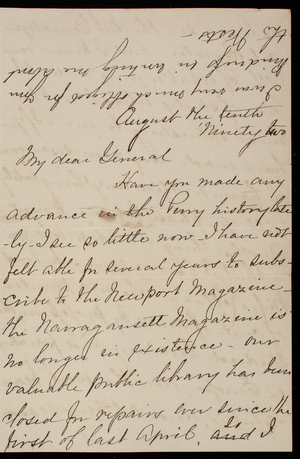 August the tenth
Ninety two
My dear General
Have you made any
advance in the Perry history late
-ly - I see so little now - I have not
felt able for several years to subs-
cribe to the Newport Magazine -
the Narragansett Magazine is
no longer in existence - our
valuable public library has been
closed for repairs ever since the
first of last April, and I
I am very much obliged for your
kindness in writing me about
the Photo -